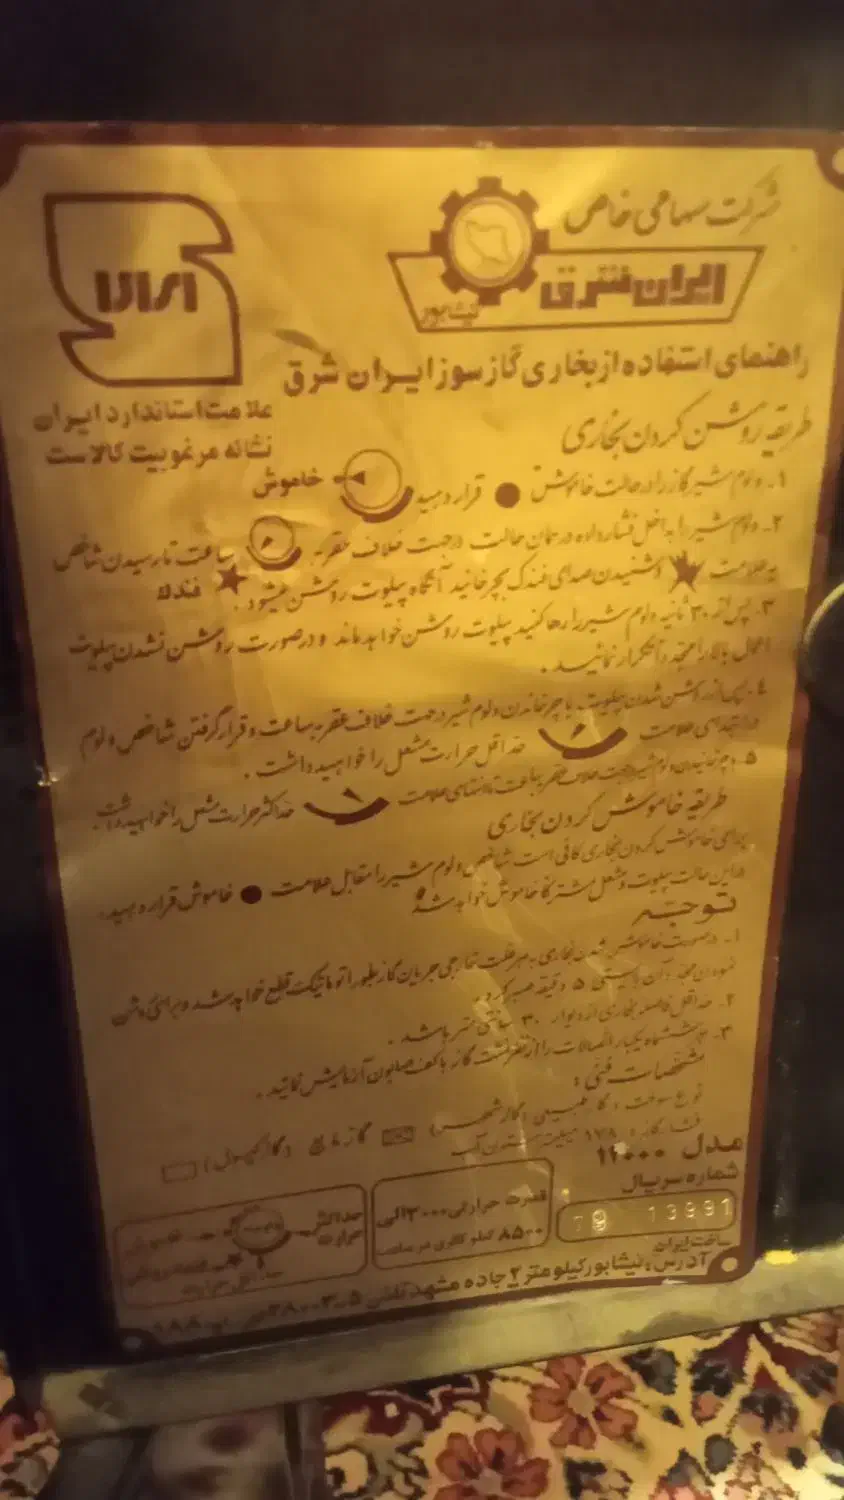 شرکت سهامی خاص
ایران شرق
نیشابور
راهنمای استفاده از بخاری گازسوز ایران شرق
علامت استاندارد ایران
نشانه مرغوبیت کالاست
طریقه روشن کردن بخاری
۱- ولوم شیر گاز را در حالت خاموش ● قرار دهید خاموش
۲- ولوم شیر را به داخل فشار داده در همان حالت در جهت خلاف عقربه ساعت تا رسیدن شاخص
به علامت و شنیدن صدای فندک بچرخانید آنگاه پیلوت روشن میشود. فندک
۳- پس از ۳۰ ثانیه ولوم شیر را رها کنید پیلوت روشن خواهد ماند و در صورت روشن نشدن پیلوت
اعمال بالا را مجدداً تکرار نمائید.
۴- پس از روشن شدن پیلوت با چرخاندن ولوم شیر در جهت خلاف عقربه ساعت و قرار گرفتن شاخص ولوم
در ابتدای علامت حداقل حرارت مشعل را خواهید داشت.
۵- چرخانیدن ولوم شیر در جهت خلاف عقربه ساعت تا انتهای علامت حداکثر حرارت مشعل را خواهید داشت.
طریقه خاموش کردن بخاری
برای خاموش کردن بخاری کافی است شاخص ولوم شیر را مقابل علامت ● خاموش قرار دهید.
در این حالت پیلوت و مشعل مشترکا خاموش خواهد شد
توجه
۱- در صورت خاموش شدن بخاری به هر علت خارجی جریان گاز بطور اتوماتیک قطع خواهد شد و برای روشن
نمودن مجدد آن بایستی ۵ دقیقه صبر کرد.
۲- حداقل فاصله بخاری از دیوار ۳۰ سانتی متر باشد.
۳- ششماه یکبار اتصالات را از نظر نشت گاز با کف صابون آزمایش نمائید.
مشخصات فنی:
نوع سوخت: گاز طبیعی (گاز شهری) گاز مایع (گاز کپسول)
فشار گاز: ۱۷۸ میلیمتر ستون آب
مدل ۱۲۰۰۰
شماره سریال
79 13991
قدرت حرارتی ۳۰۰۰ الی
۸۵۰۰ کیلو کالری در ساعت
حداکثر
حرارت
ساخت ایران
آدرس: نیشابور کیلومتر ۲ جاده مشهد تلفن